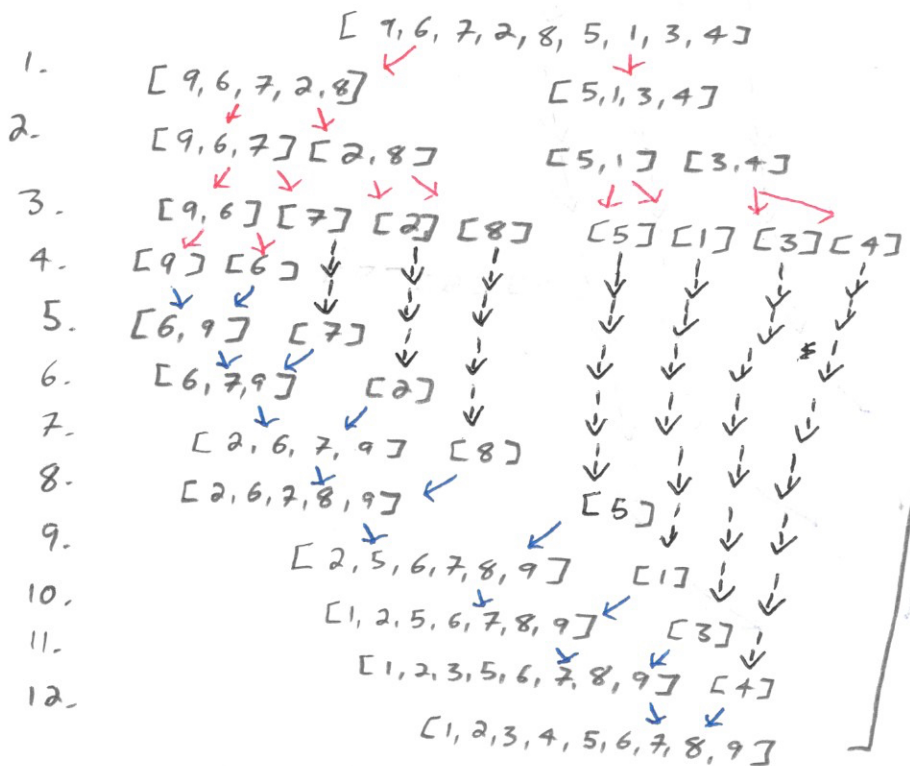 [ 9, 6, 7, 2, 8, 5, 1, 3, 4 ]
1. [ 9, 6, 7, 2, 8 ] [ 5, 1, 3, 4 ]
2. [ 9, 6, 7 ] [ 2, 8 ] [ 5, 1 ] [ 3, 4 ]
3. [ 9, 6 ] [ 7 ] [ 2 ] [ 8 ] [ 5 ] [ 1 ] [ 3 ] [ 4 ]
4. [ 9 ] [ 6 ]
5. [ 6, 9 ] [ 7 ]
6. [ 6, 7, 9 ] [ 2 ]
7. [ 2, 6, 7, 9 ] [ 8 ]
8. [ 2, 6, 7, 8, 9 ] [ 5 ]
9. [ 2, 5, 6, 7, 8, 9 ] [ 1 ]
10. [ 1, 2, 5, 6, 7, 8, 9 ] [ 3 ]
11. [ 1, 2, 3, 5, 6, 7, 8, 9 ] [ 4 ]
12. [ 1, 2, 3, 4, 5, 6, 7, 8, 9 ]